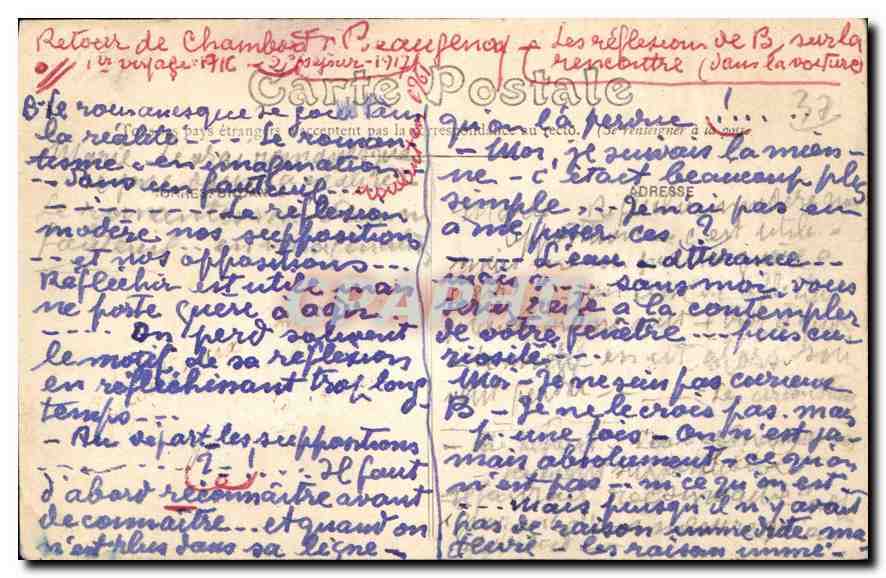 Retour de Chambord Beaugency - Les réflexions de B. sur la
1er voyage 1916 - 2e séjour - 1917 rencontre (dans la voiture)
Carte Postale
37
B - Le romanesque se joue dans
la réalité ---- Le roman
Tous les pays étrangers n'acceptent pas la correspondance au recto. (Se renseigner à la poste
tisme en imagination
-- dans un fauteuil ---
CORRESPONDANCE
------- La réflexion
modère nos suppositions
-- et nos oppositions ---
Réfléchir est utile mais
ne porte guère à agir
---- On perd souvent
le motif de sa réflexion
en réfléchissant trop long
temps ---
- Au départ les suppositions
? - ! Il faut
d'abord reconnaître avant
de connaître -- et quand on
n'est plus dans sa ligne -
qu'on l'a perdue !
- Moi, je suivais la mien-
ne - c'était beaucoup plus
ADRESSE
simple -- Je n'ai pas eu
à me poser ces ?
---- L'eau - attirance --
sans moi, vous
seriez resté à la contempler
de votre fenêtre --- puis cu
riosité ---
Moi - Je ne suis pas curieux
B - Je ne le crois pas. mais
p. une fois - On n'est ja-
mais absolument - ce qu'on
n'est pas -- ni ce qu'on est
--- Mais puisqu'il n'y avait
pas de raison immédiate ma
- les raisons immé -
CPAPHIL